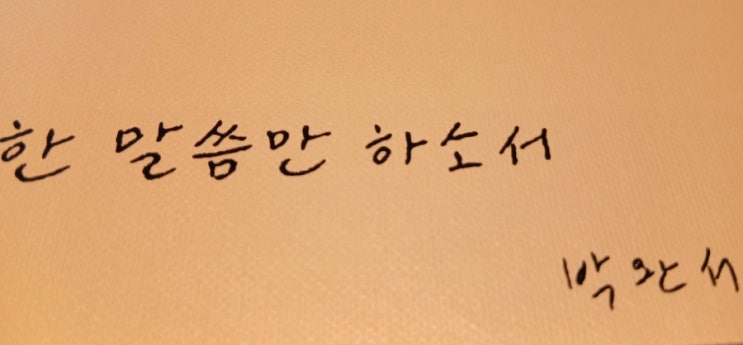 한 말씀만 하소서
박완서